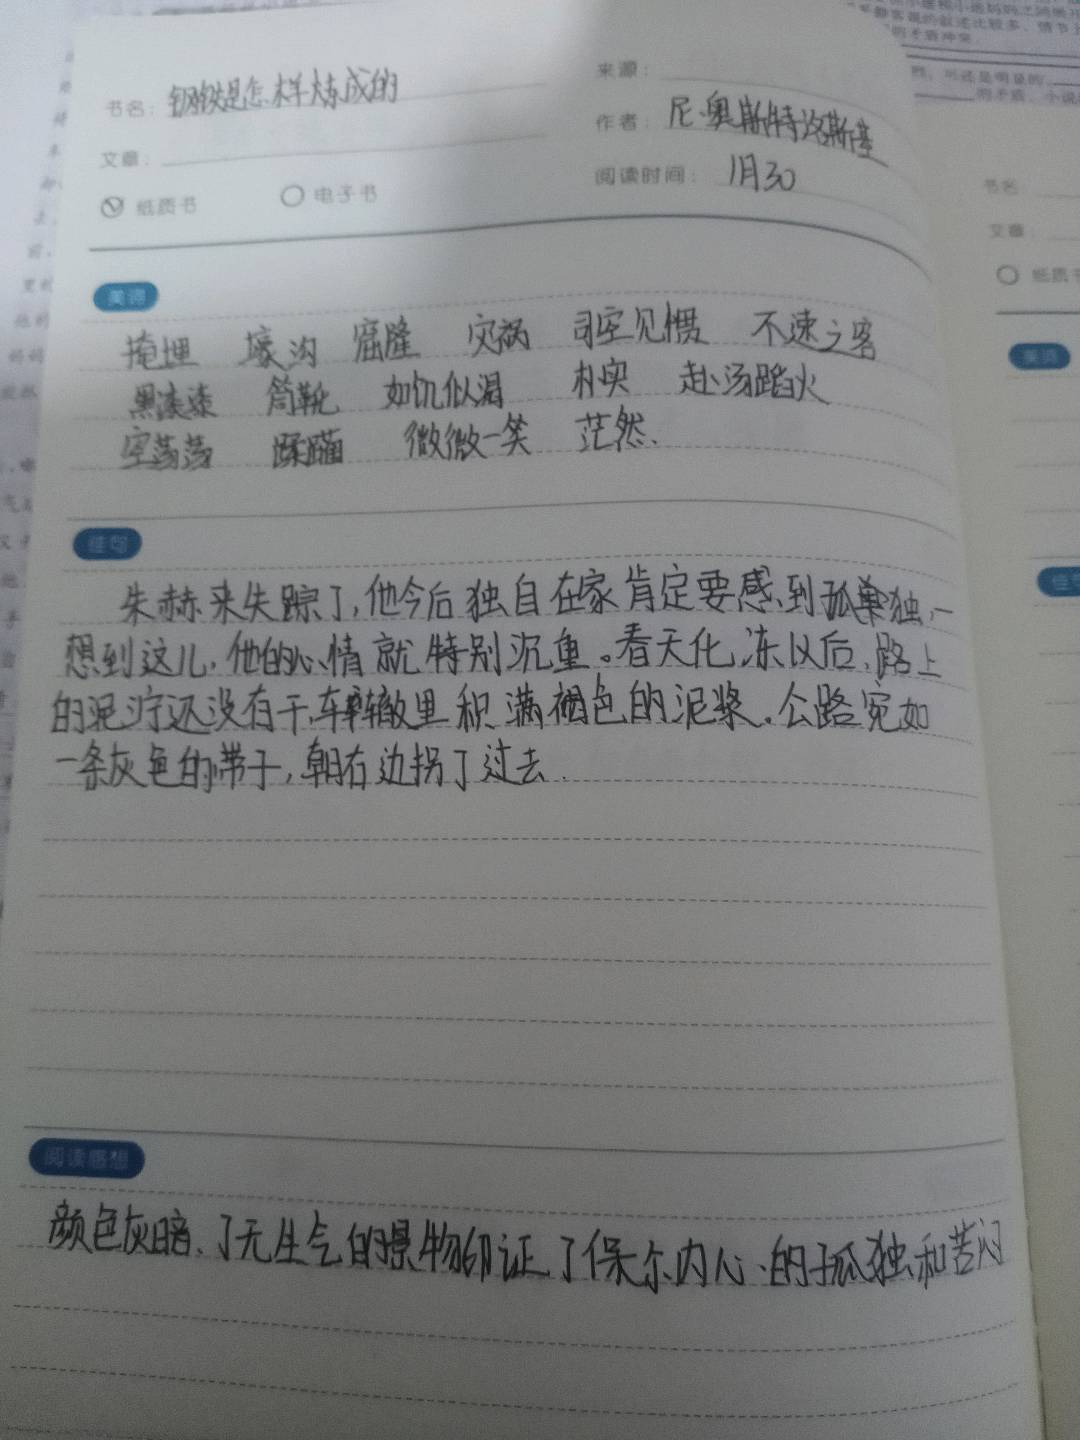 书名：钢铁是怎样炼成的
来源：
作者：尼·奥斯特洛斯基
文章：
阅读时间：1月30
纸质书 电子书
美词
掩埋 壕沟 窟隆 灾祸 司空见惯 不速之客
黑漆漆 筒靴 如饥似渴 朴实 赴汤蹈火
空荡荡 蹂躏 微微一笑 茫然.
佳句
朱赫来失踪了,他今后独自在家肯定要感到孤单独,一
想到这儿,他的心情就特别沉重。春天化冻以后,路上
的泥泞还没有干,车辙里积满褐色的泥浆.公路宛如
一条灰色的带子,朝右边拐了过去.
阅读感想
颜色灰暗、了无生气的景物印证了保尔内心的孤独和苦闷
书名
文章
纸质书
美词